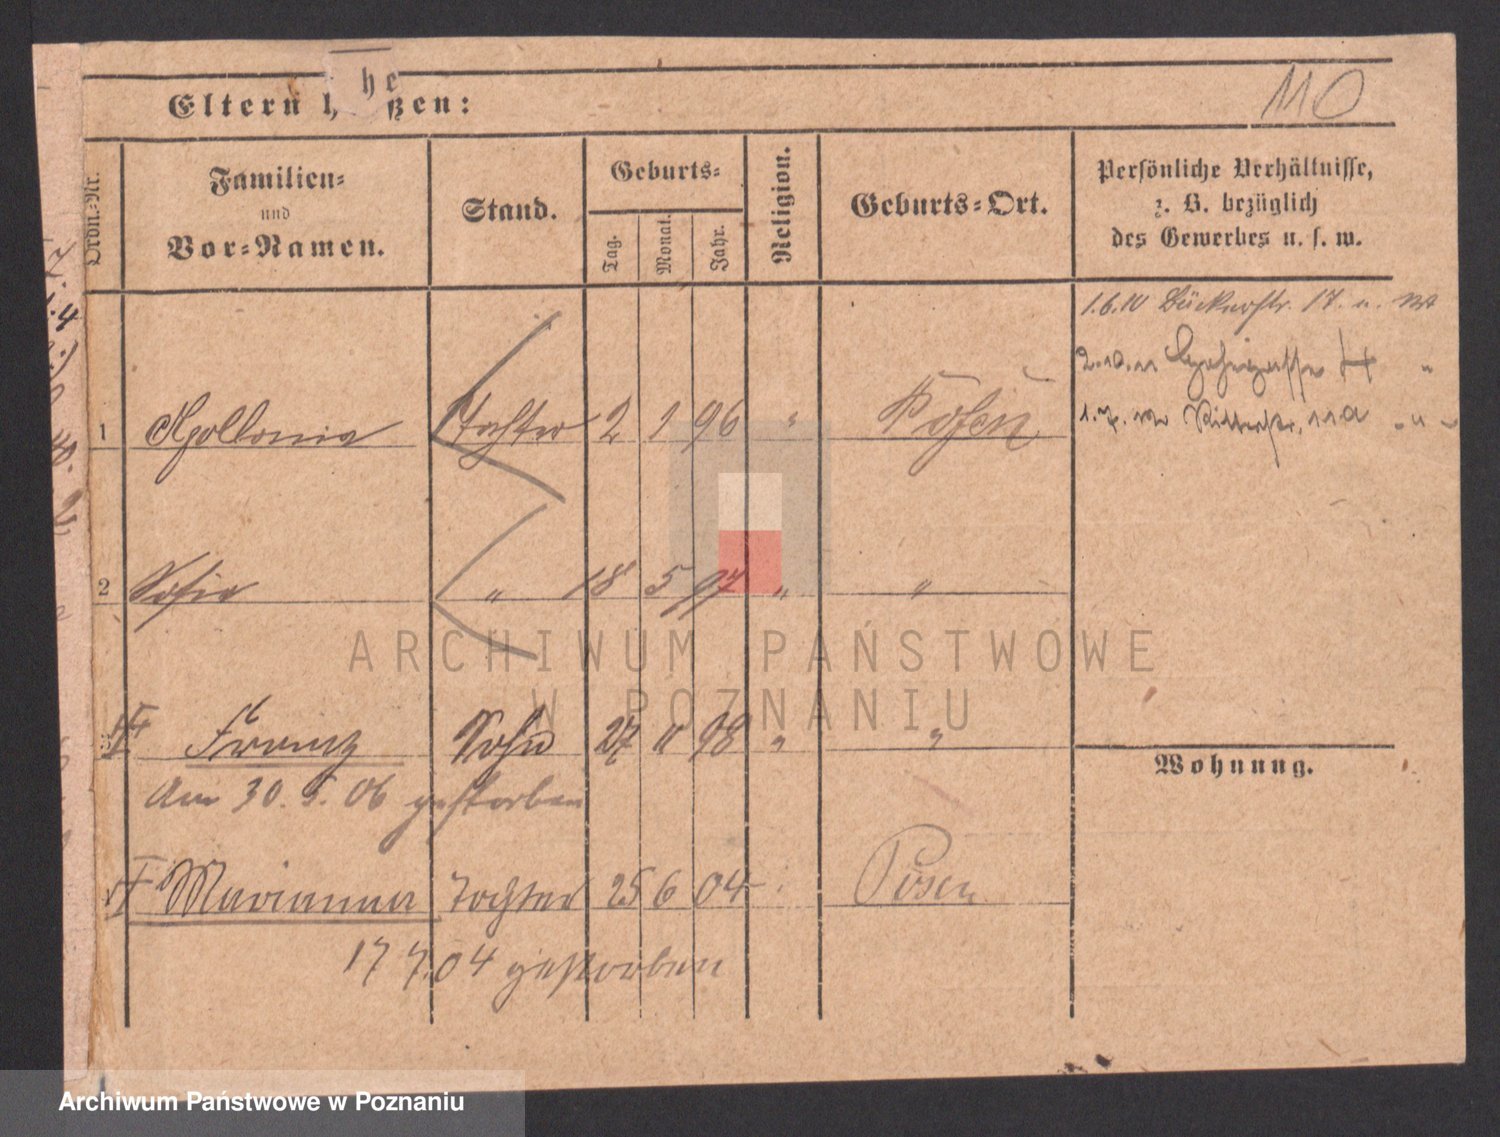 110
Eltern heißen:
Ordn.-Nr.
Familien-
und
Vor-Namen.
Stand.
Geburts-
Tag.
Monat.
Jahr.
Religion.
Geburts-Ort.
Persönliche Verhältnisse,
z. B. bezüglich
des Gewerbes u. s. w.
1.6.10 Bückerstr. 17. u.
2.10.11 4 "
1.7.12 Ritterstr. 11a " "
1 Apollonia Tochter 2 1 96 " Posen
2 Sofia " 18 5 97 " "
3 Franz Sohn 27 11 98 " "
Am 30. 5. 06 gestorben
Wohnung.
Marianna Tochter 25 6 04 Posen
17 7.04 gestorben
ARCHIWUM PAŃSTWOWE
W POZNANIU
Archiwum Państwowe w Poznaniu